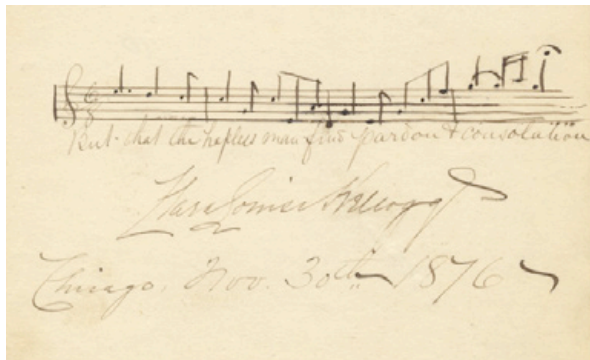 But that the hapless man find pardon & consolation
Clara Louise Kellogg
Chicago, Nov. 30th 1876